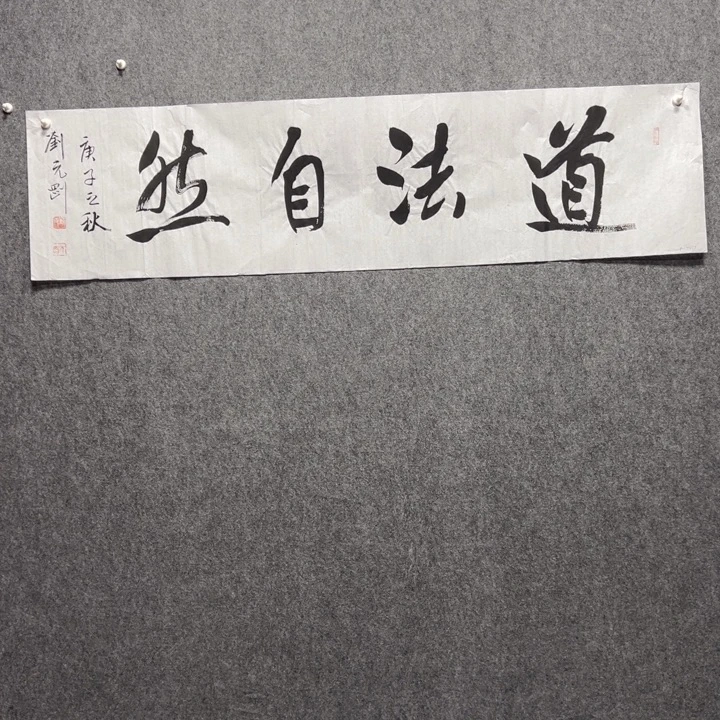 道法自然
庚子之秋
劉元剛